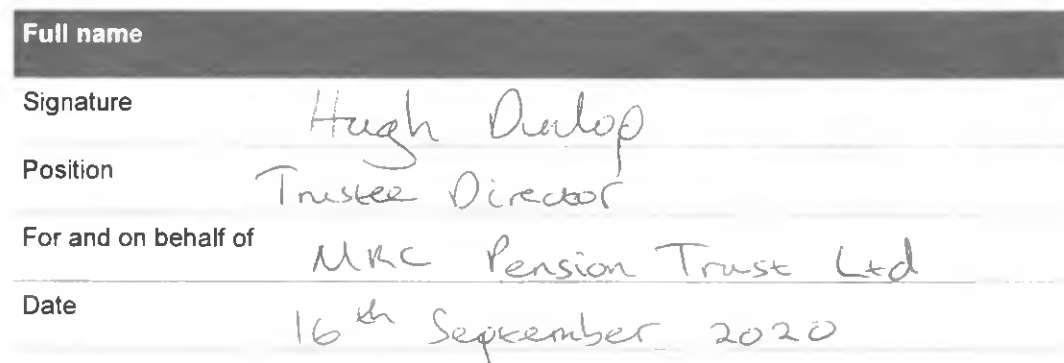 Full name
Signature Hugh Dunlop
Position Trustee Director
For and on behalf of MRC Pension Trust Ltd
Date 16th September 2020